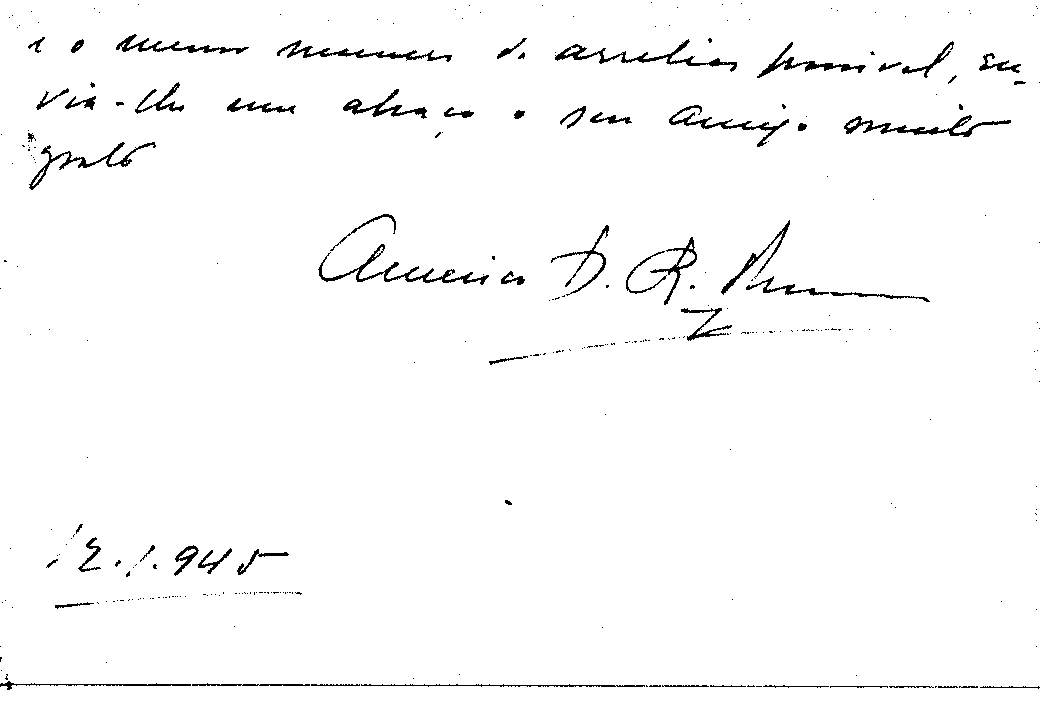 e o menor numero de arrelias possivel, en-
via-lhe um abraço o seu amigo muito
grato
Americo D. R.
12.1.945